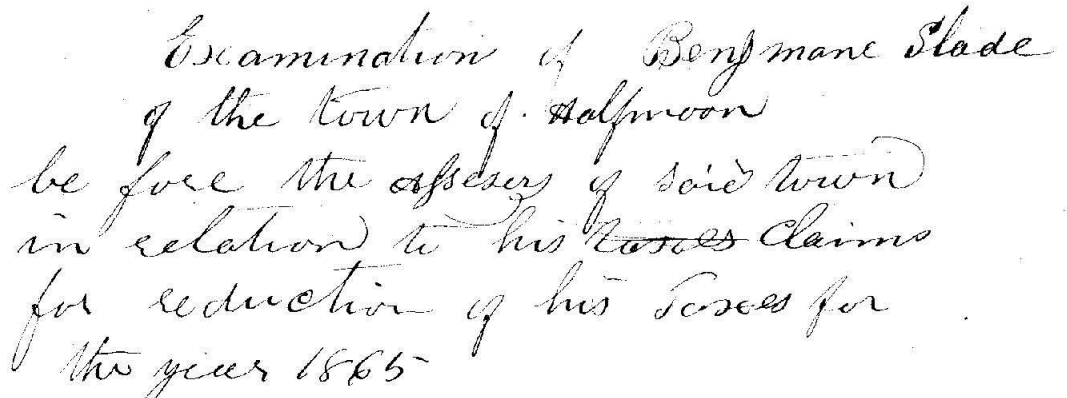 Examination of Benjmane Slade
of the town of Halfmoon
be fore the assesers of said town
in relation to his taxes Claims
for reduction of his Taxes for
the year 1865